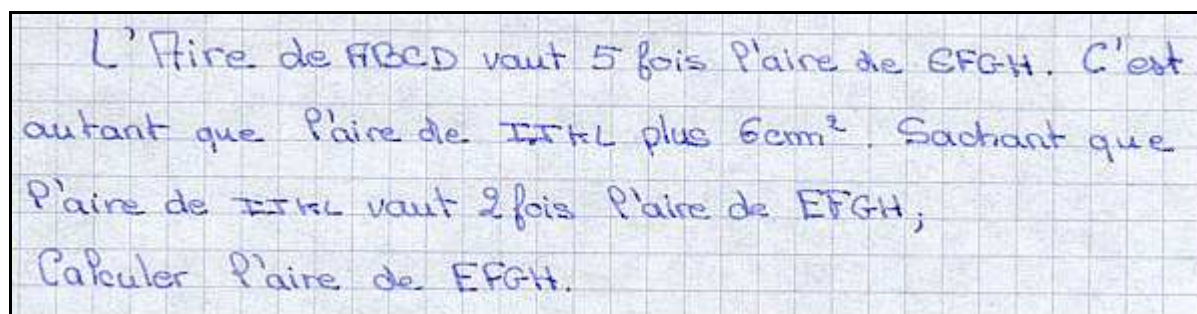 L'Aire de ABCD vaut 5 fois l'aire de EFGH. C'est
autant que l'aire de IJKL plus 6cm². Sachant que
l'aire de IJKL vaut 2 fois l'aire de EFGH;
Calculer l'aire de EFGH.